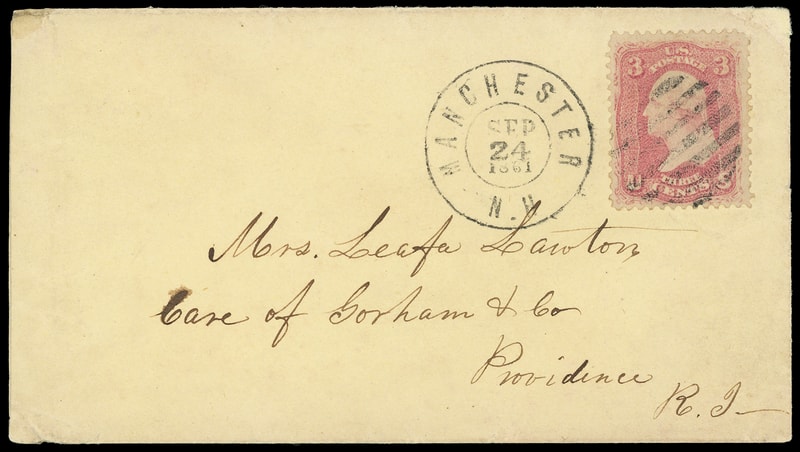 MANCHESTER
SEP
24
1861
N.H
U.S.
3 POSTAGE 3
THREE
CENTS
Mrs. Leafa Lawton
Care of Gorham & Co
Providence
R. I